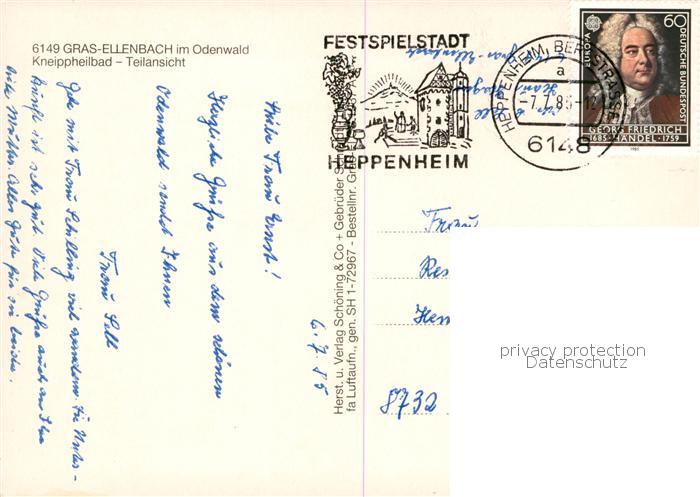 6149 GRAS-ELLENBACH im Odenwald
Kneippheilbad – Teilansicht
FESTSPIELSTADT
HEPPENHEIM
HEPPENHEIM, BERGSTRASSE
a
-7.7.85-12
6148
EUROPA
60
DEUTSCHE BUNDESPOST
GEORG FRIEDRICH
1685·HÄNDEL·1759
1985
6.7.85
Frau Ernst!
Herzliche Grüße aus dem schönen
Odenwald sendet Ihnen
Frau Sell
mit Frau Schilling viel wandern. Die Unter-
kunft ist sehr gut. Viele Grüße auch an Ihre
Mutter. Alles Gute für sie beide.
Herst. u. Verlag Schöning & Co + Gebrüder
fa Luftaufn., gen. SH 1-72967 - Bestellnr.
Frau
8732
privacy protection
Datenschutz